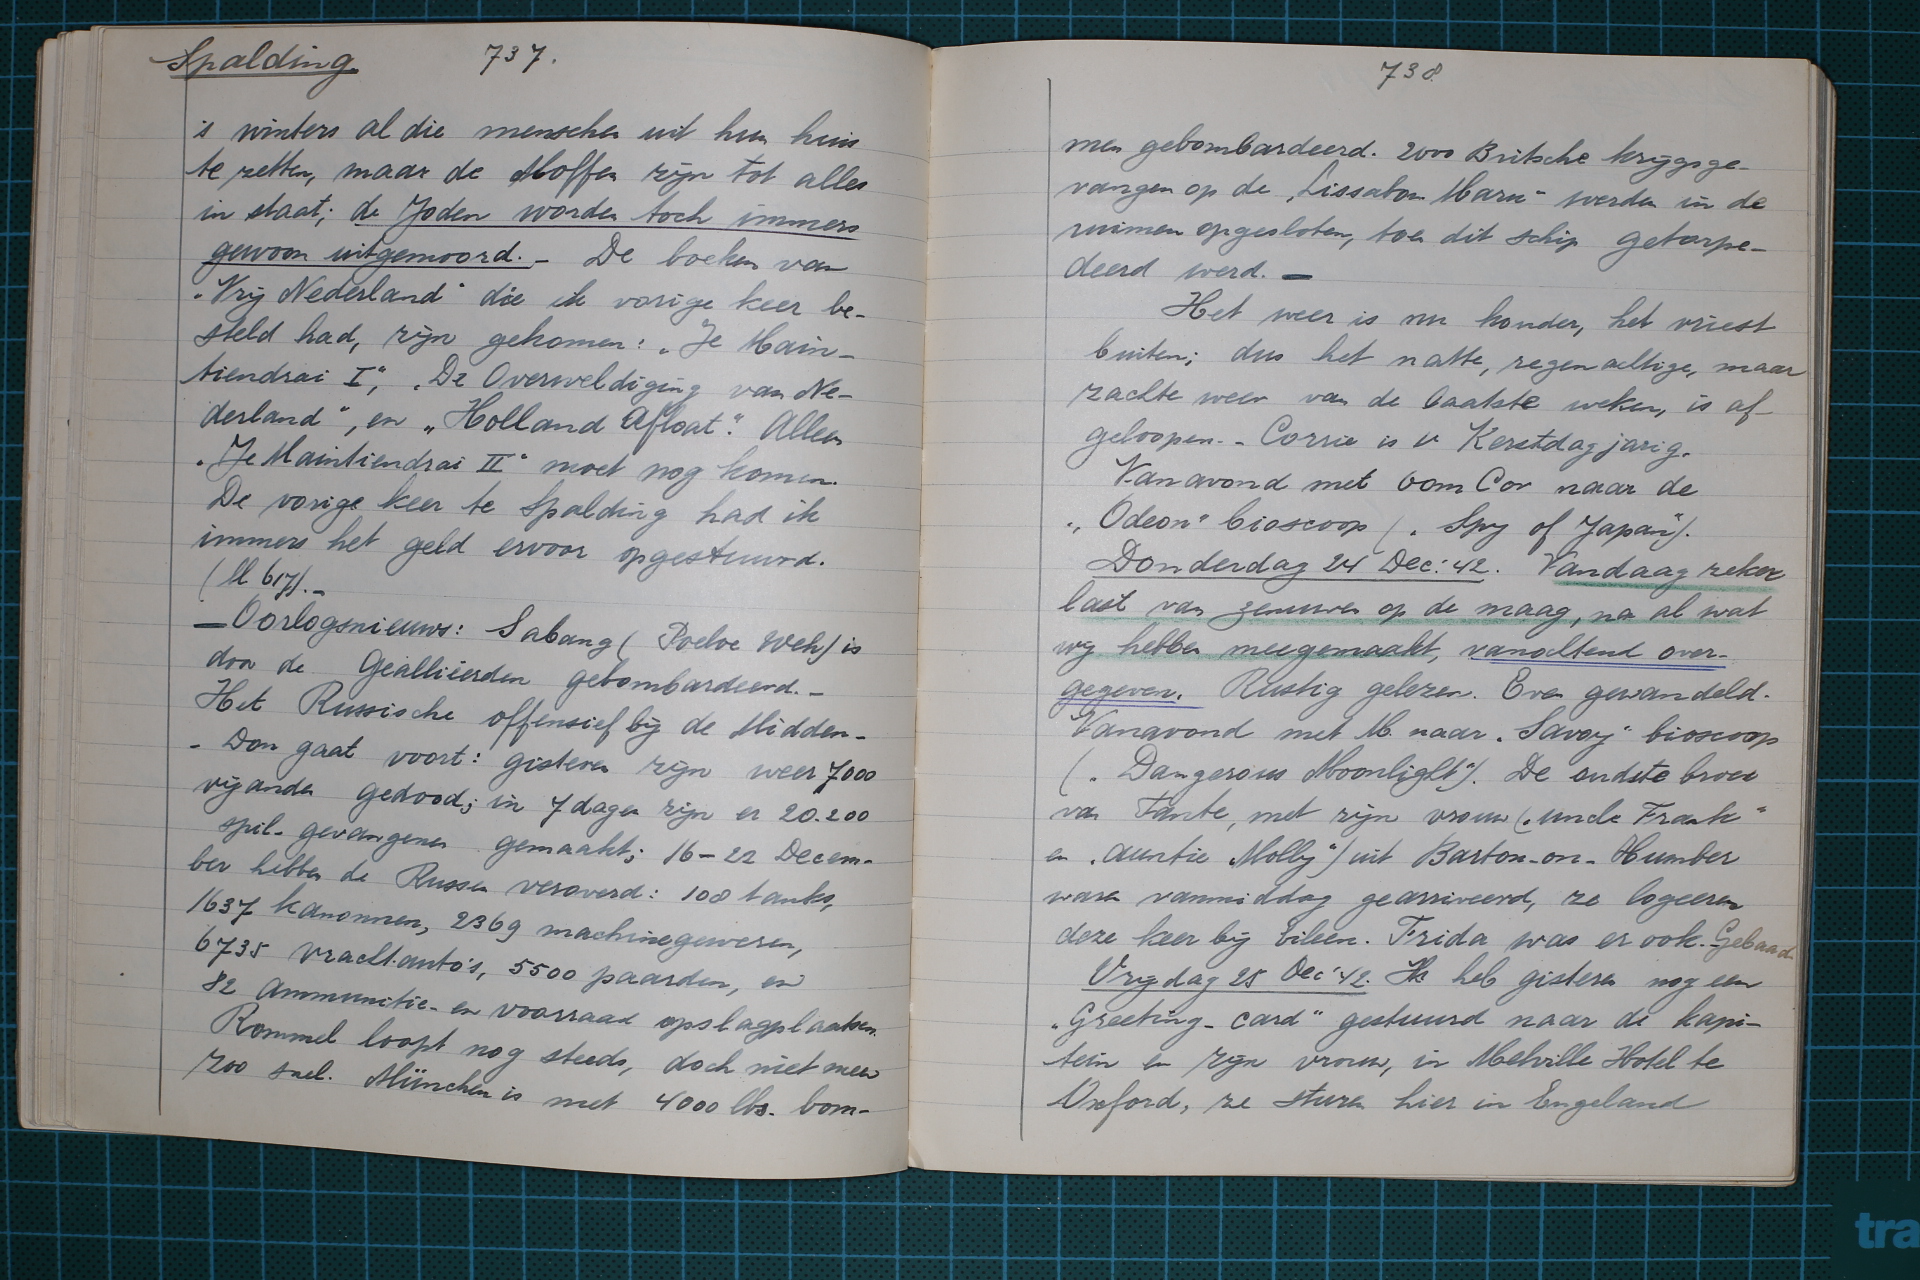 Spalding 737.
's winters al die menschen uit hun huis
te zetten, maar de Moffen zijn tot alles
in staat; de Joden worden toch immers
gewoon uitgemoord. – De boeken van
„Vrij Nederland" die ik vorige keer be-
steld had, zijn gekomen: „Je Main-
tiendrai I", „De Overweldiging van Ne-
derland", en „Holland Afloat". Alleen
„Je Maintiendrai II" moet nog komen.
De vorige keer te Spalding had ik
immers het geld ervoor opgestuurd.
(bl 617). –
– Oorlogsnieuws: Sabang (Poeloe Weh) is
door de Geallieerden gebombardeerd. –
Het Russische offensief bij de Midden-
- Don gaat voort: gisteren zijn weer 7000
vijanden gedood; in 7 dagen zijn er 20.200
spil- gevangenen gemaakt; 16 – 22 Decem-
ber hebben de Russen veroverd: 108 tanks,
1637 kanonnen, 2369 machinegeweren,
6735 vrachtauto's, 5500 paarden, en
82 ammunitie- en voorraad opslagplaatsen.
Rommel loopt nog steeds, doch niet meer
zoo snel. München is met 4000 lbs. bom-
738.
men gebombardeerd. 2000 Britsche krijgsge-
vangen op de „Lissabon Maru" werden in de
ruimen opgesloten, toen dit schip getorpe-
deerd werd. –
Het weer is nu kouder, het vriest
buiten; dus het natte, regenachtige, maar
zachte weer van de laatste weken, is af-
geloopen. – Corrie is 1e Kerstdag jarig.
Vanavond met Oom Cor naar de
„Odeon" bioscoop („Spy of Japan").
Donderdag 24 Dec: '42. Vandaag zeker
last van zenuwen op de maag, na al wat
wij hebben meegemaakt, vanochtend over-
gegeven. Rustig gelezen. Even gewandeld.
Vanavond met M. naar „Savoy" bioscoop
(„Dangerous Moonlight"). De oudste broer
van Tante, met zijn vrouw („uncle Frank"
en „auntie Molly") uit Barton-on-Humber
waren vanmiddag gearriveerd, ze logeeren
deze keer bij Eileen. Frida was er ook. Gebaad.
Vrijdag 25 Dec '42. Ik heb gisteren nog een
„Greeting-card" gestuurd naar de kapi-
tein en zijn vrouw, in Melville Hotel te
Oxford, ze sturen hier in Engeland
tra